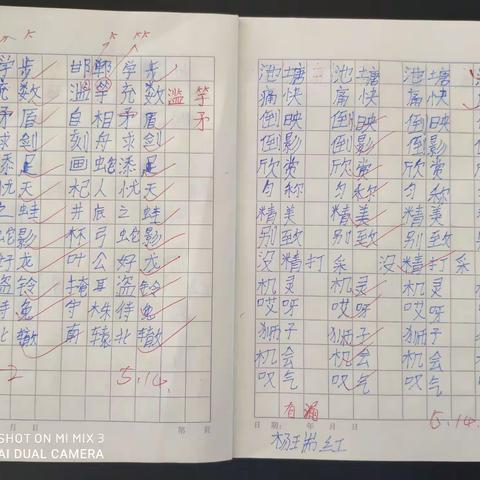 学步 邯郸学步
充数 滥竽充数 滥 竽
矛盾 自相矛盾 矛
求剑 刻舟求剑
添足 画蛇添足
忧天 杞人忧天
之蛙 井底之蛙
蛇影 杯弓蛇影
好龙 叶公好龙
盗铃 掩耳盗铃
待兔 守株待兔
北辙 南辕北辙
2 5.14.
第 页
月 日
SHOT ON MI MIX 3
AI DUAL CAMERA
池塘 池塘 池塘
痛快 痛快 痛快
倒映 倒映 倒映
倒影 倒影 倒影
欣赏 欣赏 欣赏
匀称 匀称 匀称
精美 精美 精美
别致 别致 别致
没精打采 没精打采
机灵 机灵 机灵
哎呀 哎呀 哎呀
狮子 狮子 狮子
机会 机会 机会
叹气 叹气 叹气
有漏 5.14.
日期: 年 月 日